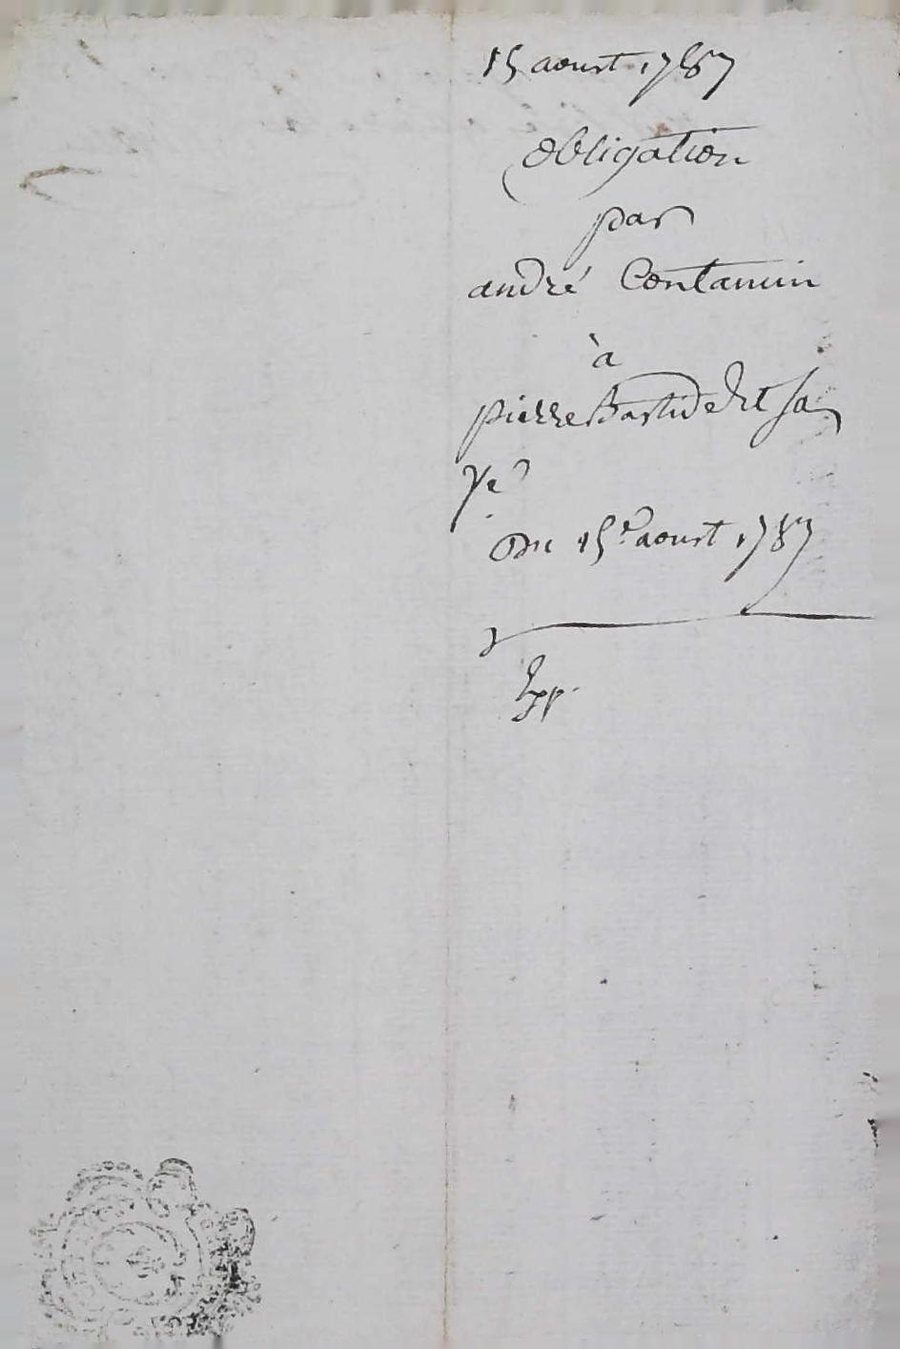 15 aoust 1787
obligation
par
andré Contamin
à
pierre Bastide et sa
fe
Du 15e aoust 1787
Exp.